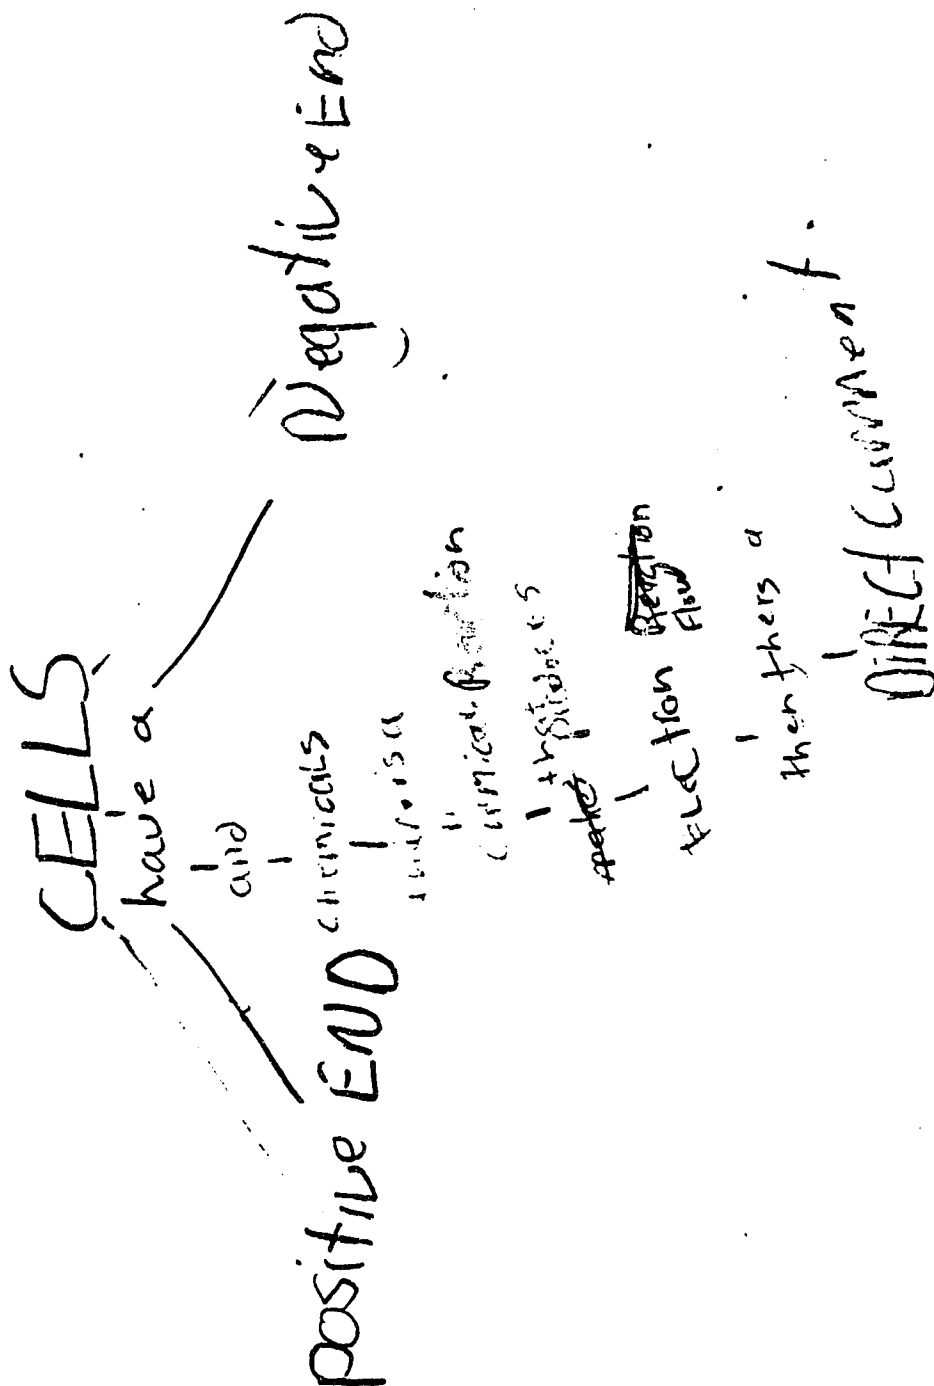 CELLS
have a
positive END
Negative End
and
chemicals
there is a
chemical Reaction
that
produces
Electron
Flow
then thers a
DIRECT current.